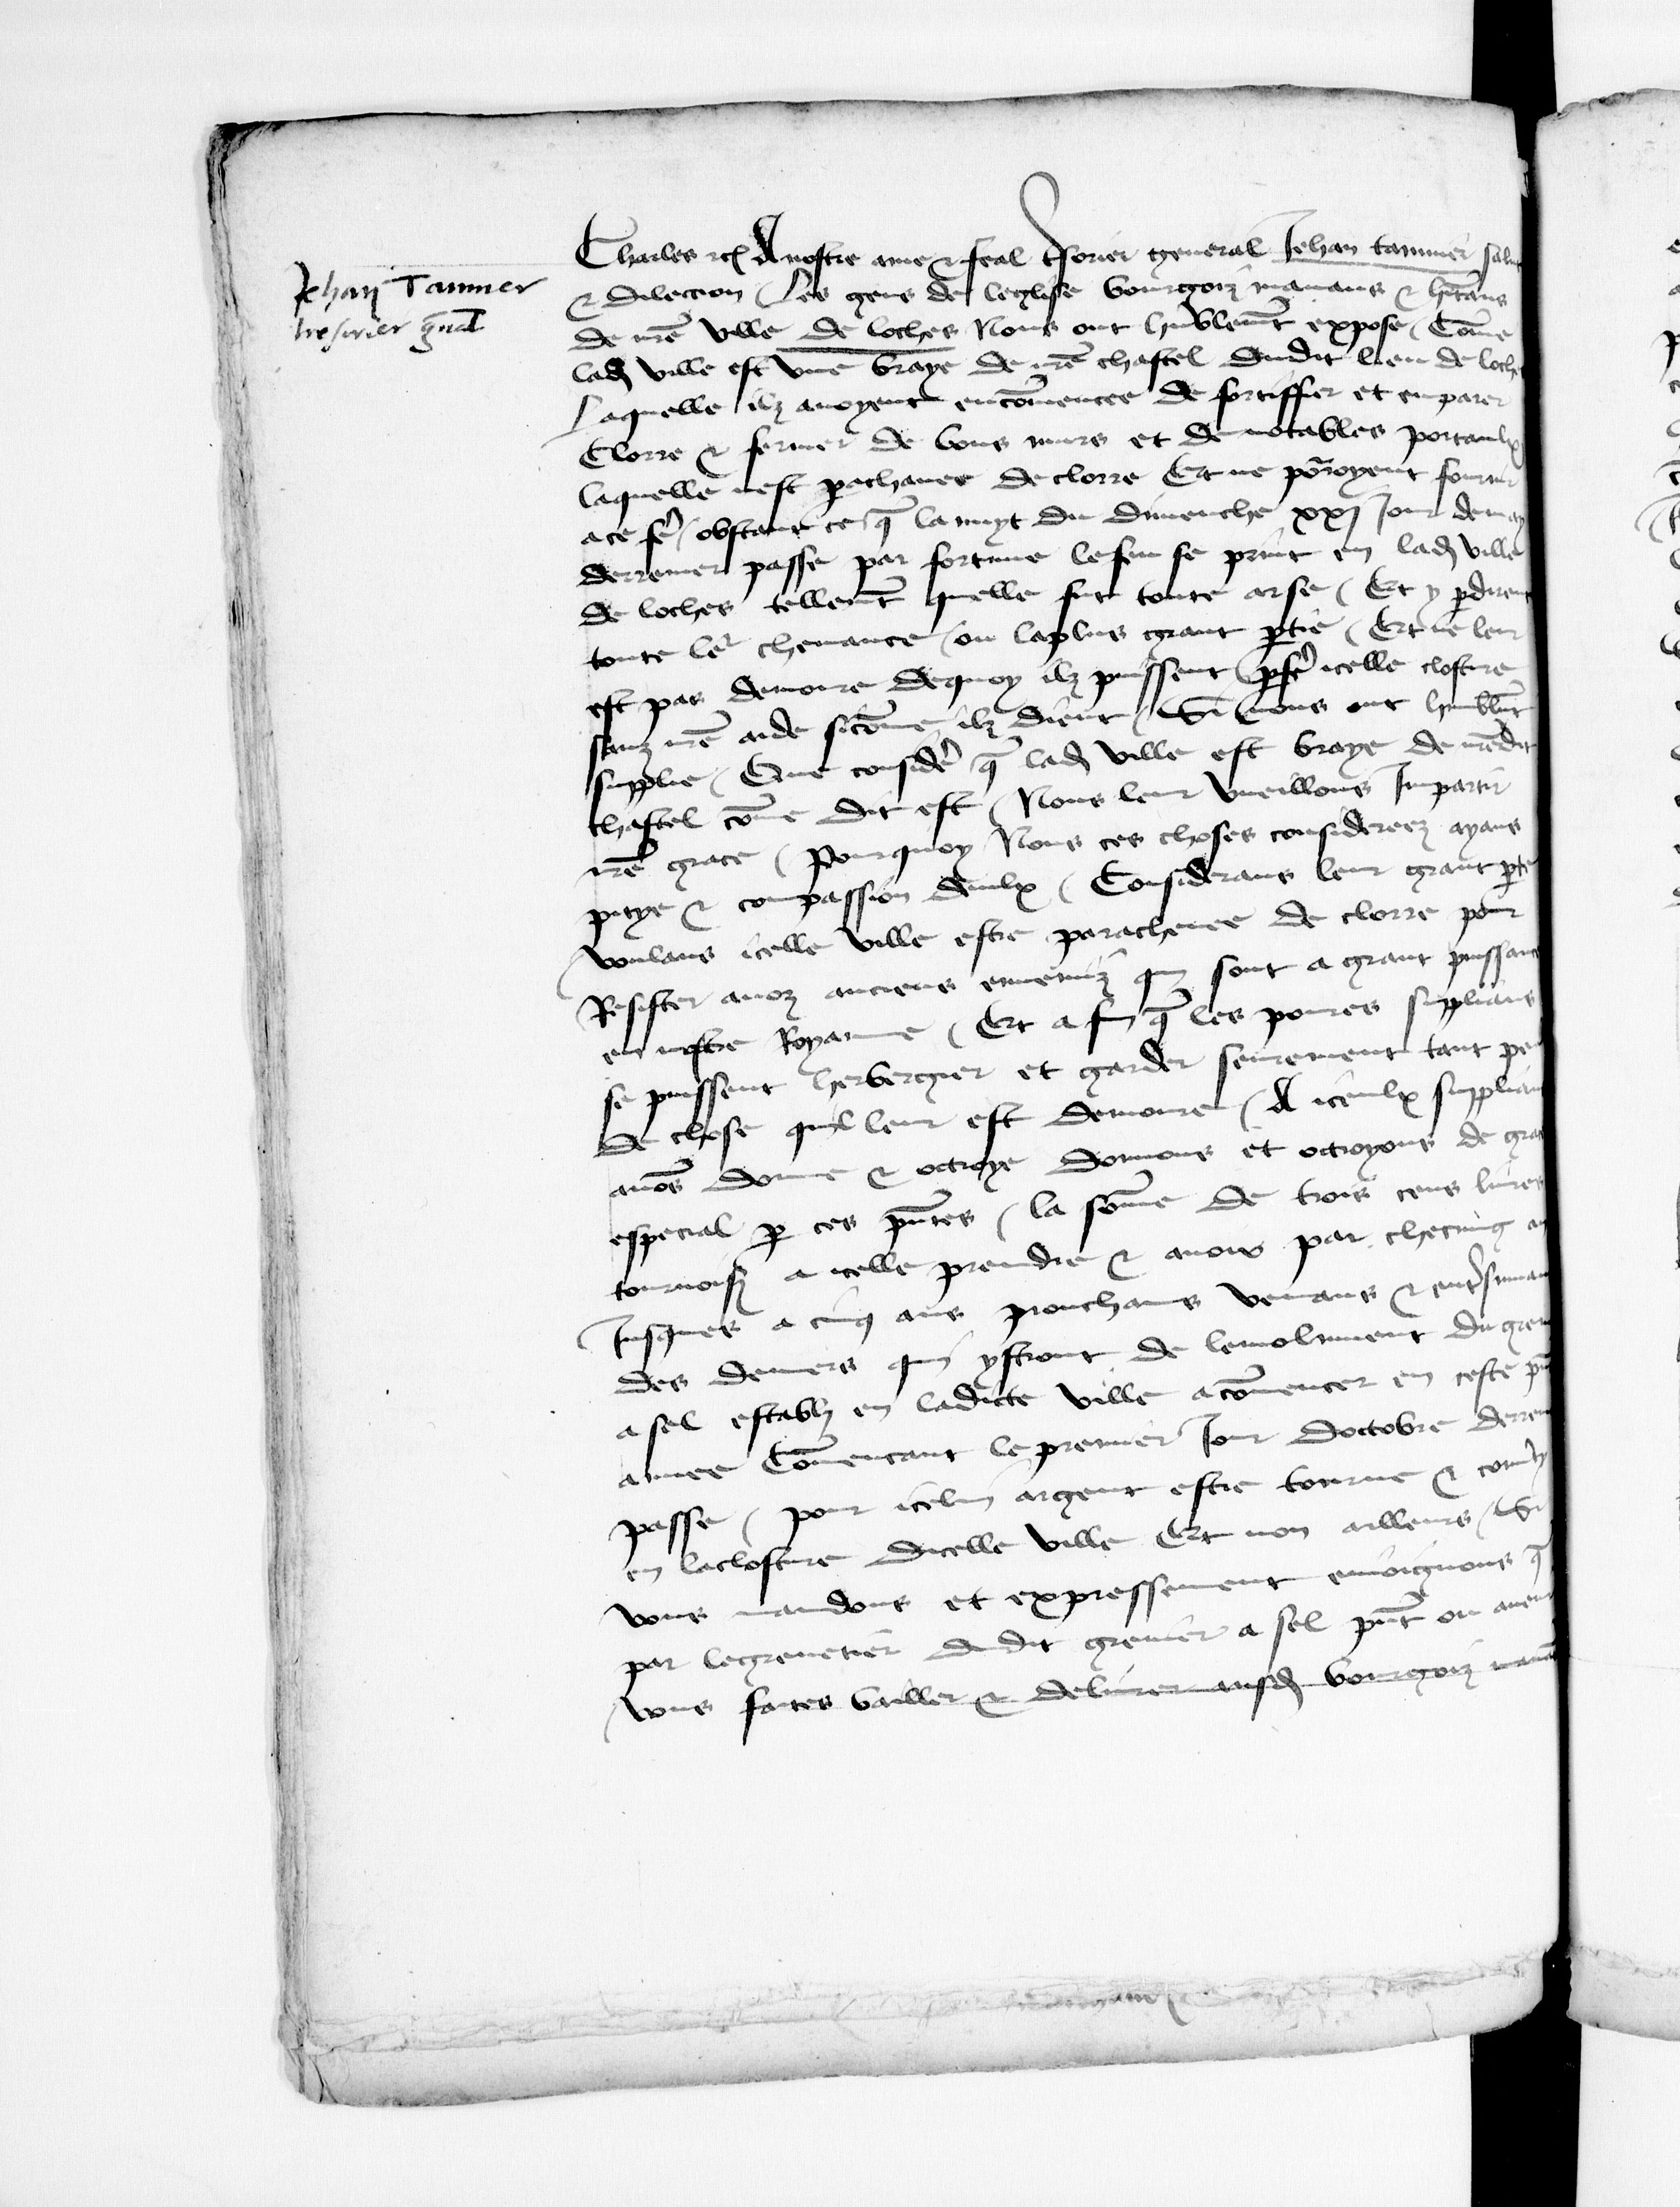 Jehan Tanner
tresorier gñal
Charles rex A nostre ame & feal tsorier general Jehan tanner salut
& dilection / Les gens de leglise bourgoiz manans & hitans
de nrẽ ville de loches Nous ont hublemẽt expose / Cõme
lad ville est vne braye de nrẽ chastel dudit lieu de loches
Laquelle ilz auoyent encõmencee de fortiffier et emparer
Clorre & fermer de bons murs et de notables portaulx
laquelle nest pacheuee de clorre Et ne põroyent fournir
a ce fẽ / obstant ce q̃ la nuyt du dimenche xxj Jour de may
derrenier passe par fortune le feu se print en lad ville
de loches tellemẽt quelle fut toute arse / Et y pdirent
toute ler cheuance / ou la plus grant ptie / Et ne leur
est pas demoure dequoy ilz puissent pfẽ icelle closture
sanz nrẽ aide si cõme ilz dient / Si nous ont humblmẽt
supplie / Que considẽ q̃ lad ville est braye de nrẽdit
chastel cõme dit est / Nous leur vueillons Impartir
nrẽ grace / Pourquoy Nous ces choses considereez ayans
pitye & compassion deulx / Considerans leur grant pte
voulans icelle ville estre paracheuee de clorre pour
Resister a noz anciens ennemiz qui sont a grant puissance
en nostre Royaume / Et a fin q̃ les poures supplians
se puissent herbergier et garder seurement tant peu
de chose quil leur est demoure / A iceulx supplians
auõs donne & octroye donnons et octroyons de grace
especial p ces pñtes / la sõme de trois cens liures
tournoiz a icelle prendre & auoir par checung an
Jusques a cinq ans prouchains venans & ent̃suiuans
des deniers qui ystront de lemolument du grenier
a sel establj en ladicte ville a cõmencer en ceste pñt
annee Cõmencant le premier Jour doctobre derrenier
passe / pour icelui argent estre tourne & conũty
en la closture dicelle ville Et non ailleurs / Si
vous mandons et expressement enioignons q̃
par le grenetier dudit grenier a sel pñt ou auenir
vous faites bailler & deliurer ausd bourgoiz manans